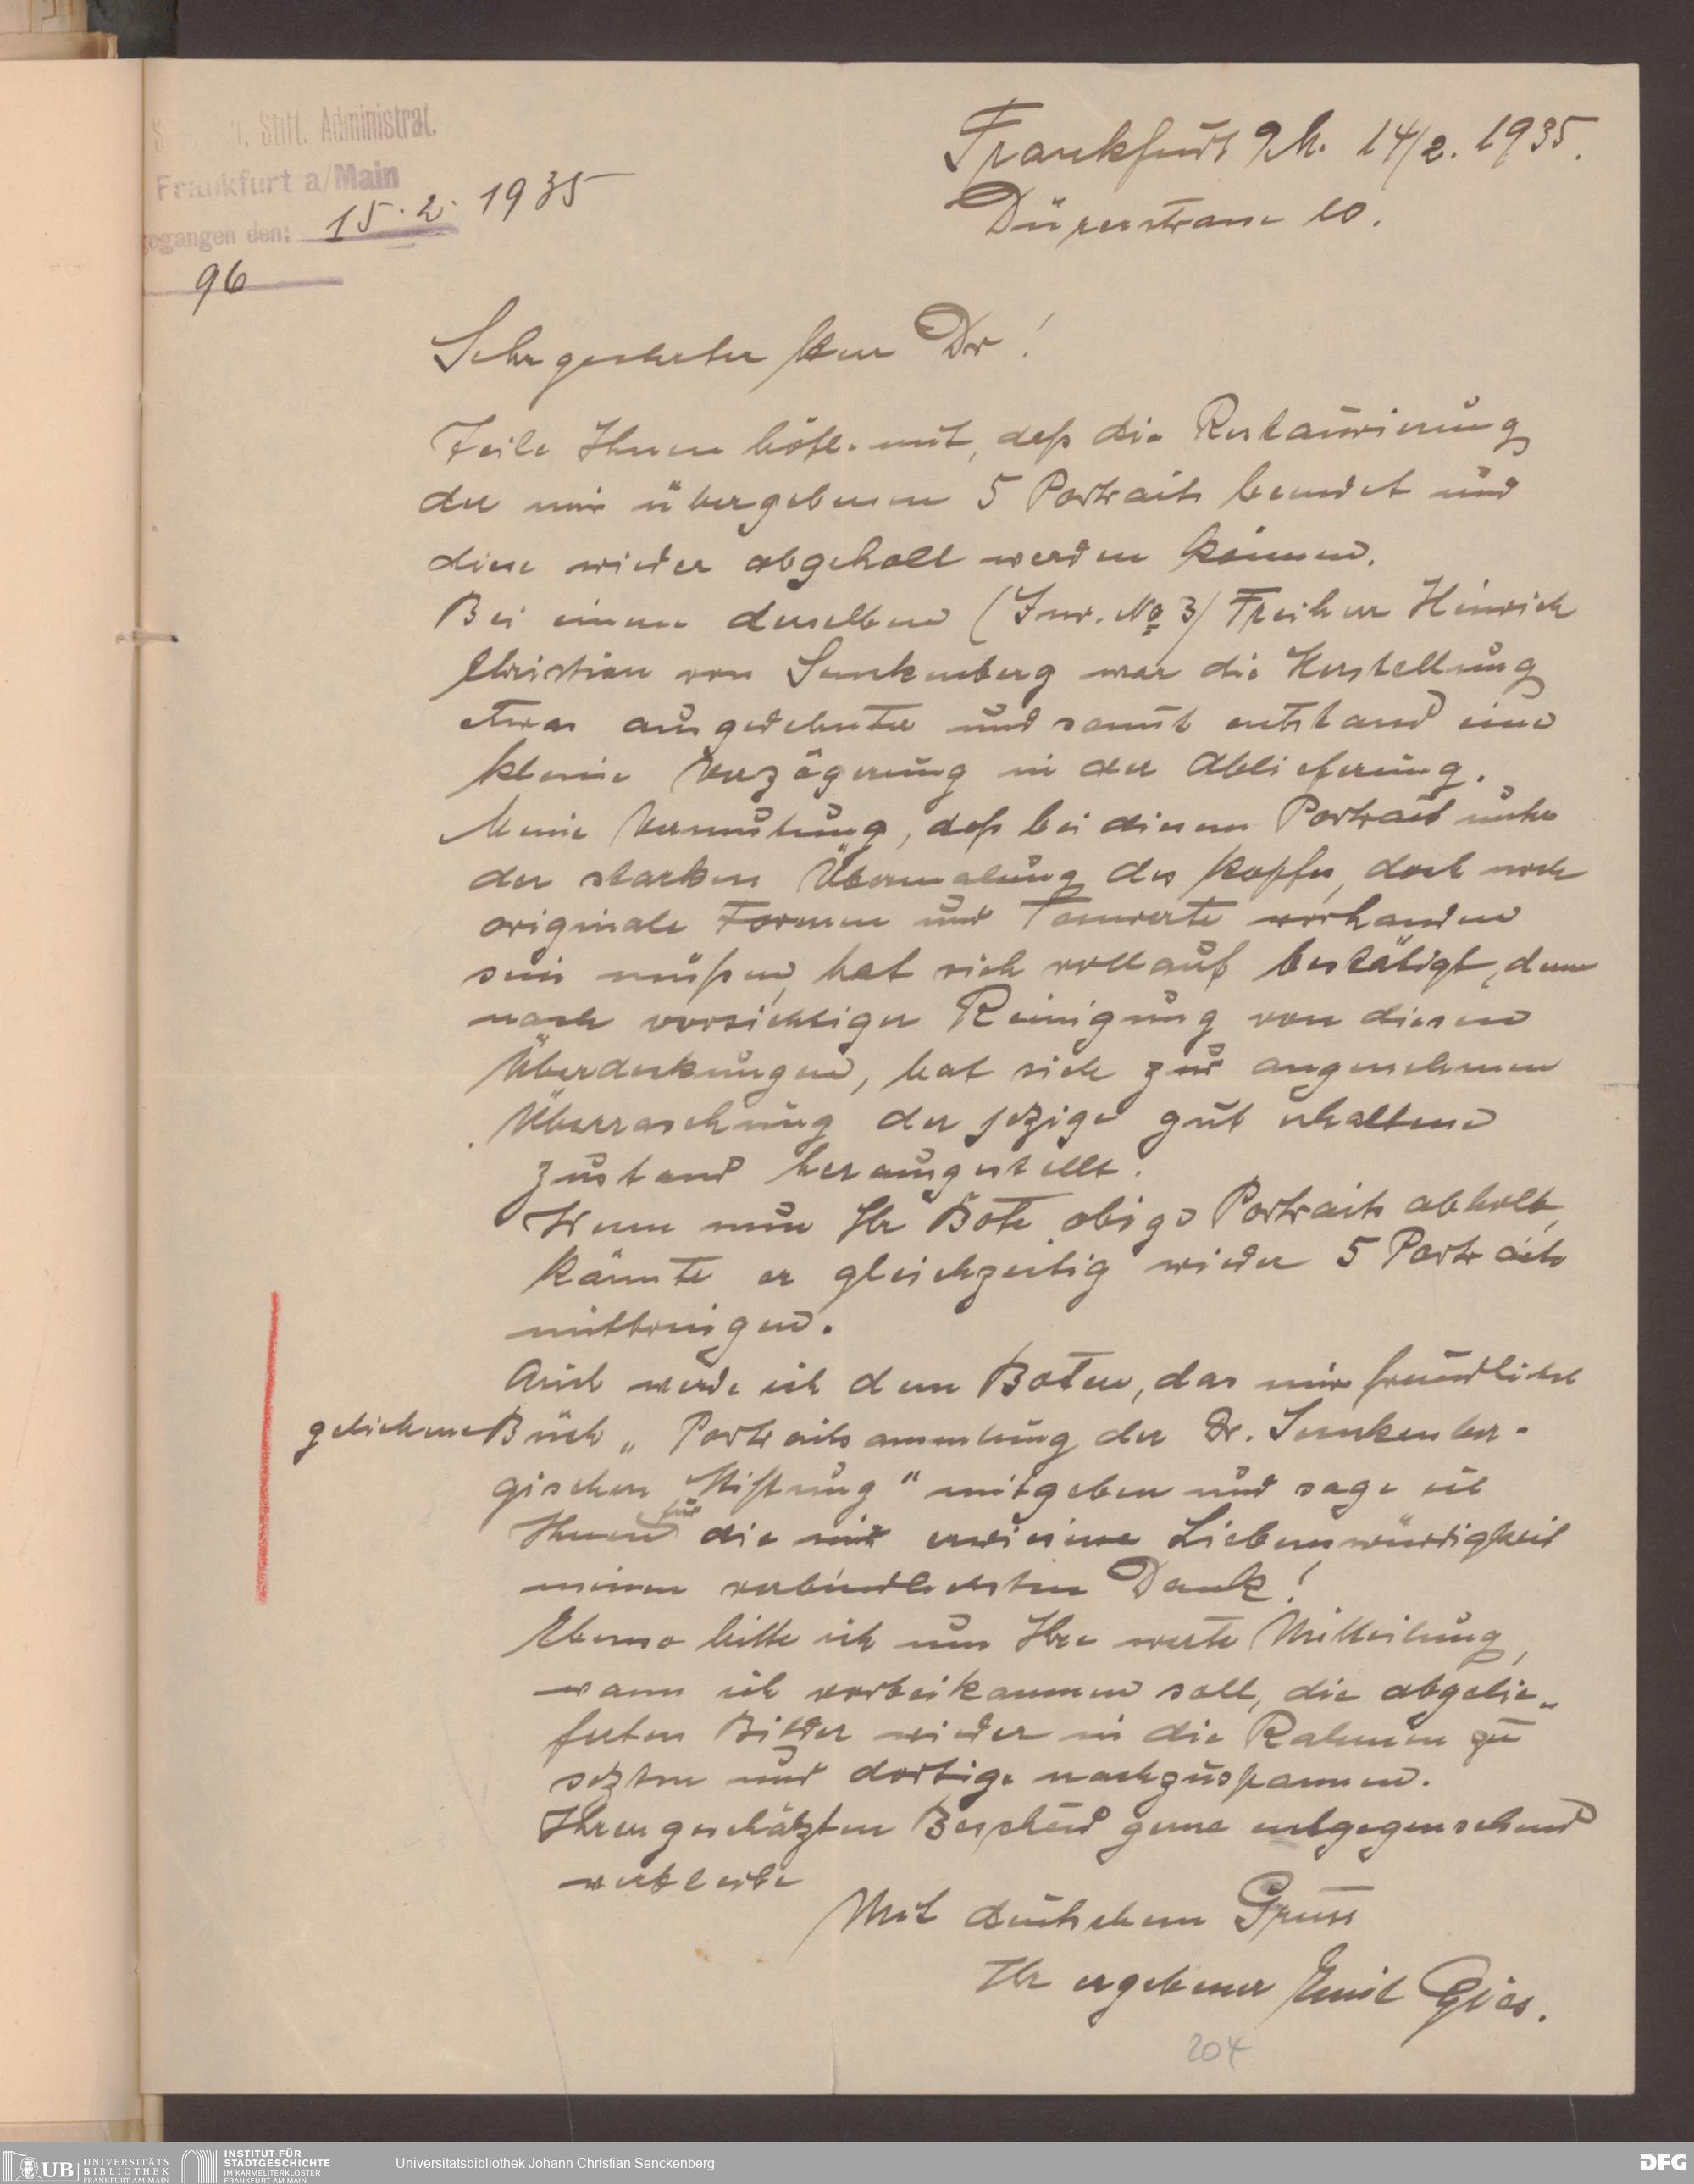 Stift. Administrat.
Frankfurt a/Main
gegangen den: 15. 2. 1935
96
Frankfurt M. 14/2. 1935.
Dürerstrasse 10.
Sehr geehrter Herr Dr!
Teile Ihnen höfl. mit, daß die Restaurierung
der mir übergebenen 5 Portraits beendet und
diese wieder abgeholt werden können.
Bei einem derselben (Inv. No 3) Freiherr Heinrich
Christian von Senkenberg war die Herstellung
etwas ausgedehnter und somit entstand eine
kleine Verzögerung in der Ablieferung.
Meine Vermutung, daß bei diesem Portrait unter
der starken Übermalung des Kopfes, doch noch
originale Formen und Tonwerte vorhanden
sein müßen, hat sich vollauf bestätigt, denn
nach vorsichtiger Reinigung von diesen
Überdeckungen, hat sich zur angenehmen
Überraschung der jezige gut erhaltene
Zustand herausgestellt.
Wenn nun Ihr Bote obige Portraits abholt,
könnte er gleichzeitig wieder 5 Portraits
mitbringen.
Auch werde ich dem Boten, das mir freundlichst
geliehene Buch „Portraitsammlung der Dr. Senkenber-
gischen Stiftung“ mitgeben und sage ich
Ihnen für die mir erwiesene Liebenswürdigkeit
meinen verbindlichsten Dank!
Ebenso bitte ich um Ihre werte Mitteilung,
wann ich vorbeikommen soll, die abgelie-
ferten Bilder wieder in die Rahmen zu
setzen und dortige nachzuspannen.
Ihren geschätzten Bescheid gerne entgegensehend
verbleibe
Mit deutschem Gruss
Ihr ergebener Emil Gies.
204
UB UNIVERSITÄTS
BIBLIOTHEK
FRANKFURT AM MAIN
INSTITUT FÜR
STADTGESCHICHTE
IM KARMELITERKLOSTER
FRANKFURT AM MAIN
Universitätsbibliothek Johann Christian Senckenberg
DFG